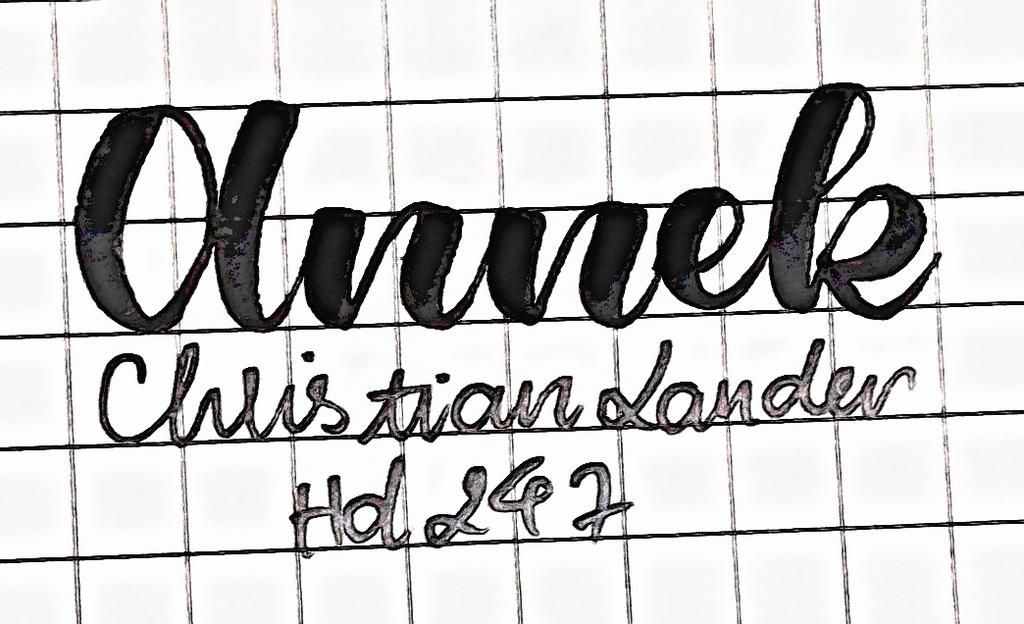 Annek
Christian Lander
Hd 247